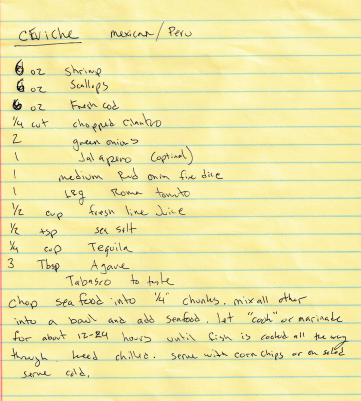 CEViche mexican/Peru
6 oz shrimp
6 oz Scallops
6 oz Fresh cod
1/4 cup chopped cilantro
2 green onions
1 Jalapeno (optinal)
1 medium Red onion fine dice
1 Leg Roma tomato
1/2 cup fresh lime Juice
1/2 tsp sea salt
1/4 cup Tequila
3 Tbsp Agave
Tabasco to taste
Chop seafood into 1/4" chunks. mix all other
into a bowl and add seafood. let "cook" or marinate
for about 12-24 hours until fish is cooked all the way
through. keed chilled. serve with corn chips or on salad
serve cold.